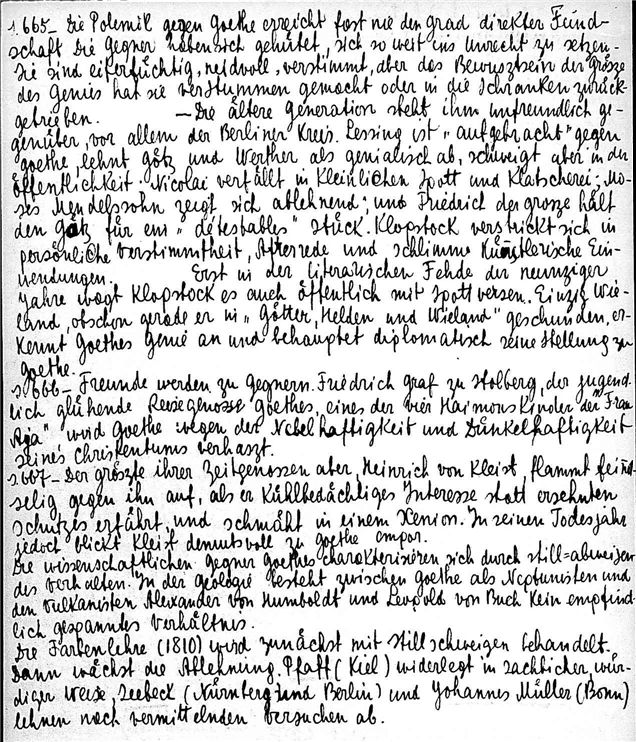 s 665_ Die Polemik gegen Goethe erreicht fast nie den Grad direkter Feind-
schaft Die Gegner haben sich gehütet, sich so weit ins Unrecht zu setzen-
Sie sind eifersüchtig, neidvoll, verstimmt, aber das Bewusztsein der Grösze
des Genies hat sie verstummen gemacht oder in die Schranken zurück-
getrieben. — Die ältere Generation steht ihm unfreundlich ge-
genüber, vor allem der Berliner Kreis. Lessing ist "aufgebracht" gegen
Goethe, lehnt Götz und Werther als genialisch ab, schweigt aber in der
Öffentlichkeit. Nicolai verfällt in kleinlichen Spott und Klatscherei; Mo-
ses Mendelssohn zeigt sich ablehnend; und Friedrich der grosze hält
den Götz für ein "détestables" Stück. Klopstock verstrickt sich in
persönliche Verstimmtheit, Afterrede und schlimme künstlerische Ein-
wendungen. Erst in der literarischen Fehde der neunziger
Jahre wagt Klopstock es auch öffentlich mit Spottversen. Einzig Wie-
land, obschon gerade er in "Götter, Helden und Wieland" geschunden, er-
kennt Goethes Genie an und behauptet diplomatisch seine Stellung zu
Goethe.
s 666_ Freunde werden zu Gegnern. Friedrich Graf zu Stolberg, der jugend-
lich glühende Reisegenosse Goethes, eines der vier Haimonskinder der "Frau
Aja" wird Goethe wegen der Nebelhaftigkeit und Dünkelhaftigkeit
seines Christentums verhaszt.
s 667_ Der gröszte ihrer Zeitgenossen aber, Heinrich von Kleist, flammt feind-
selig gegen ihn auf, als er kühlbedächtiges Interesse statt ersehnten
Schutzes erfährt, und schmäht in einem Xenion. In seinen Todesjahr
jedoch blickt Kleist demutsvoll zu Goethe empor.
Die wissenschaftlichen Gegner Goethes charakterisieren sich durch still=abweisen
des Verhalten. In der Geologie besteht zwischen Goethe als Neptunisten und
den Vulkanisten Alexander von Humboldt und Leopold von Buch kein empfind-
lich gespanntes Verhältnis.
Die Farbenlehre (1810) wird zunächst mit Stillschweigen behandelt.
Dann wächst die Ablehnung. Pfaff (Kiel) widerlegt in sachlicher, wür-
diger Weise, Seebeck (Nürnberg und Berlin) und Yohannes Müller (Bonn)
lehnen nach vermittelnden Versuchen ab.